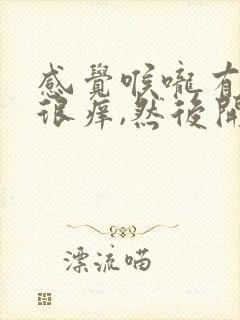 感覺喉嚨有
很痒,然後開
漂流喵